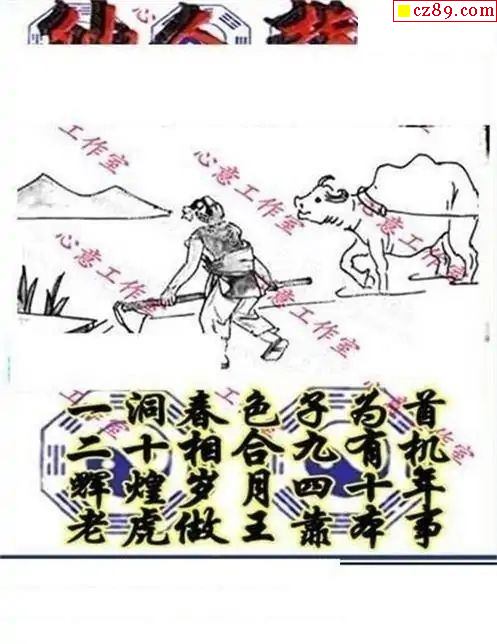 cz89.com
工作室
心意工作室
心意工作室
心意工作室
心意工作室
工作室
一洞春色子为首
二十相合九有机
辉煌岁月四十年
老虎做王靠本事